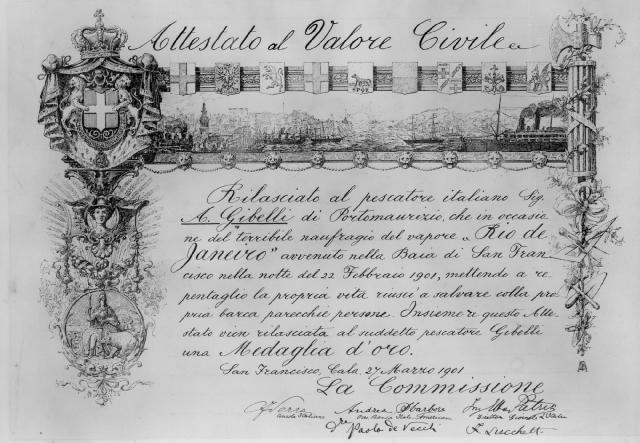 Attestato al Valore Civile
SPQR
Rilasciato al pescatore italiano Sig.
A. Gibelli di Portomaurizio, che in occasio
ne del terribile naufragio del vapore „Rio de
Janeiro" avvenuto nella Baia di San Fran
cisco nella notte del 22 Febbraio 1901, mettendo a re
pentaglio la propria vita riuscì a salvare colla pro
pria barca parecchie persone. Insieme a questo Atte
stato vien rilasciata al suddetto pescatore Gibelli
una Medaglia d'oro.
San Francisco, Cala. 27 Marzo 1901
La Commissione
Andrea Sbarboro
Dr. Paolo de Vecchi